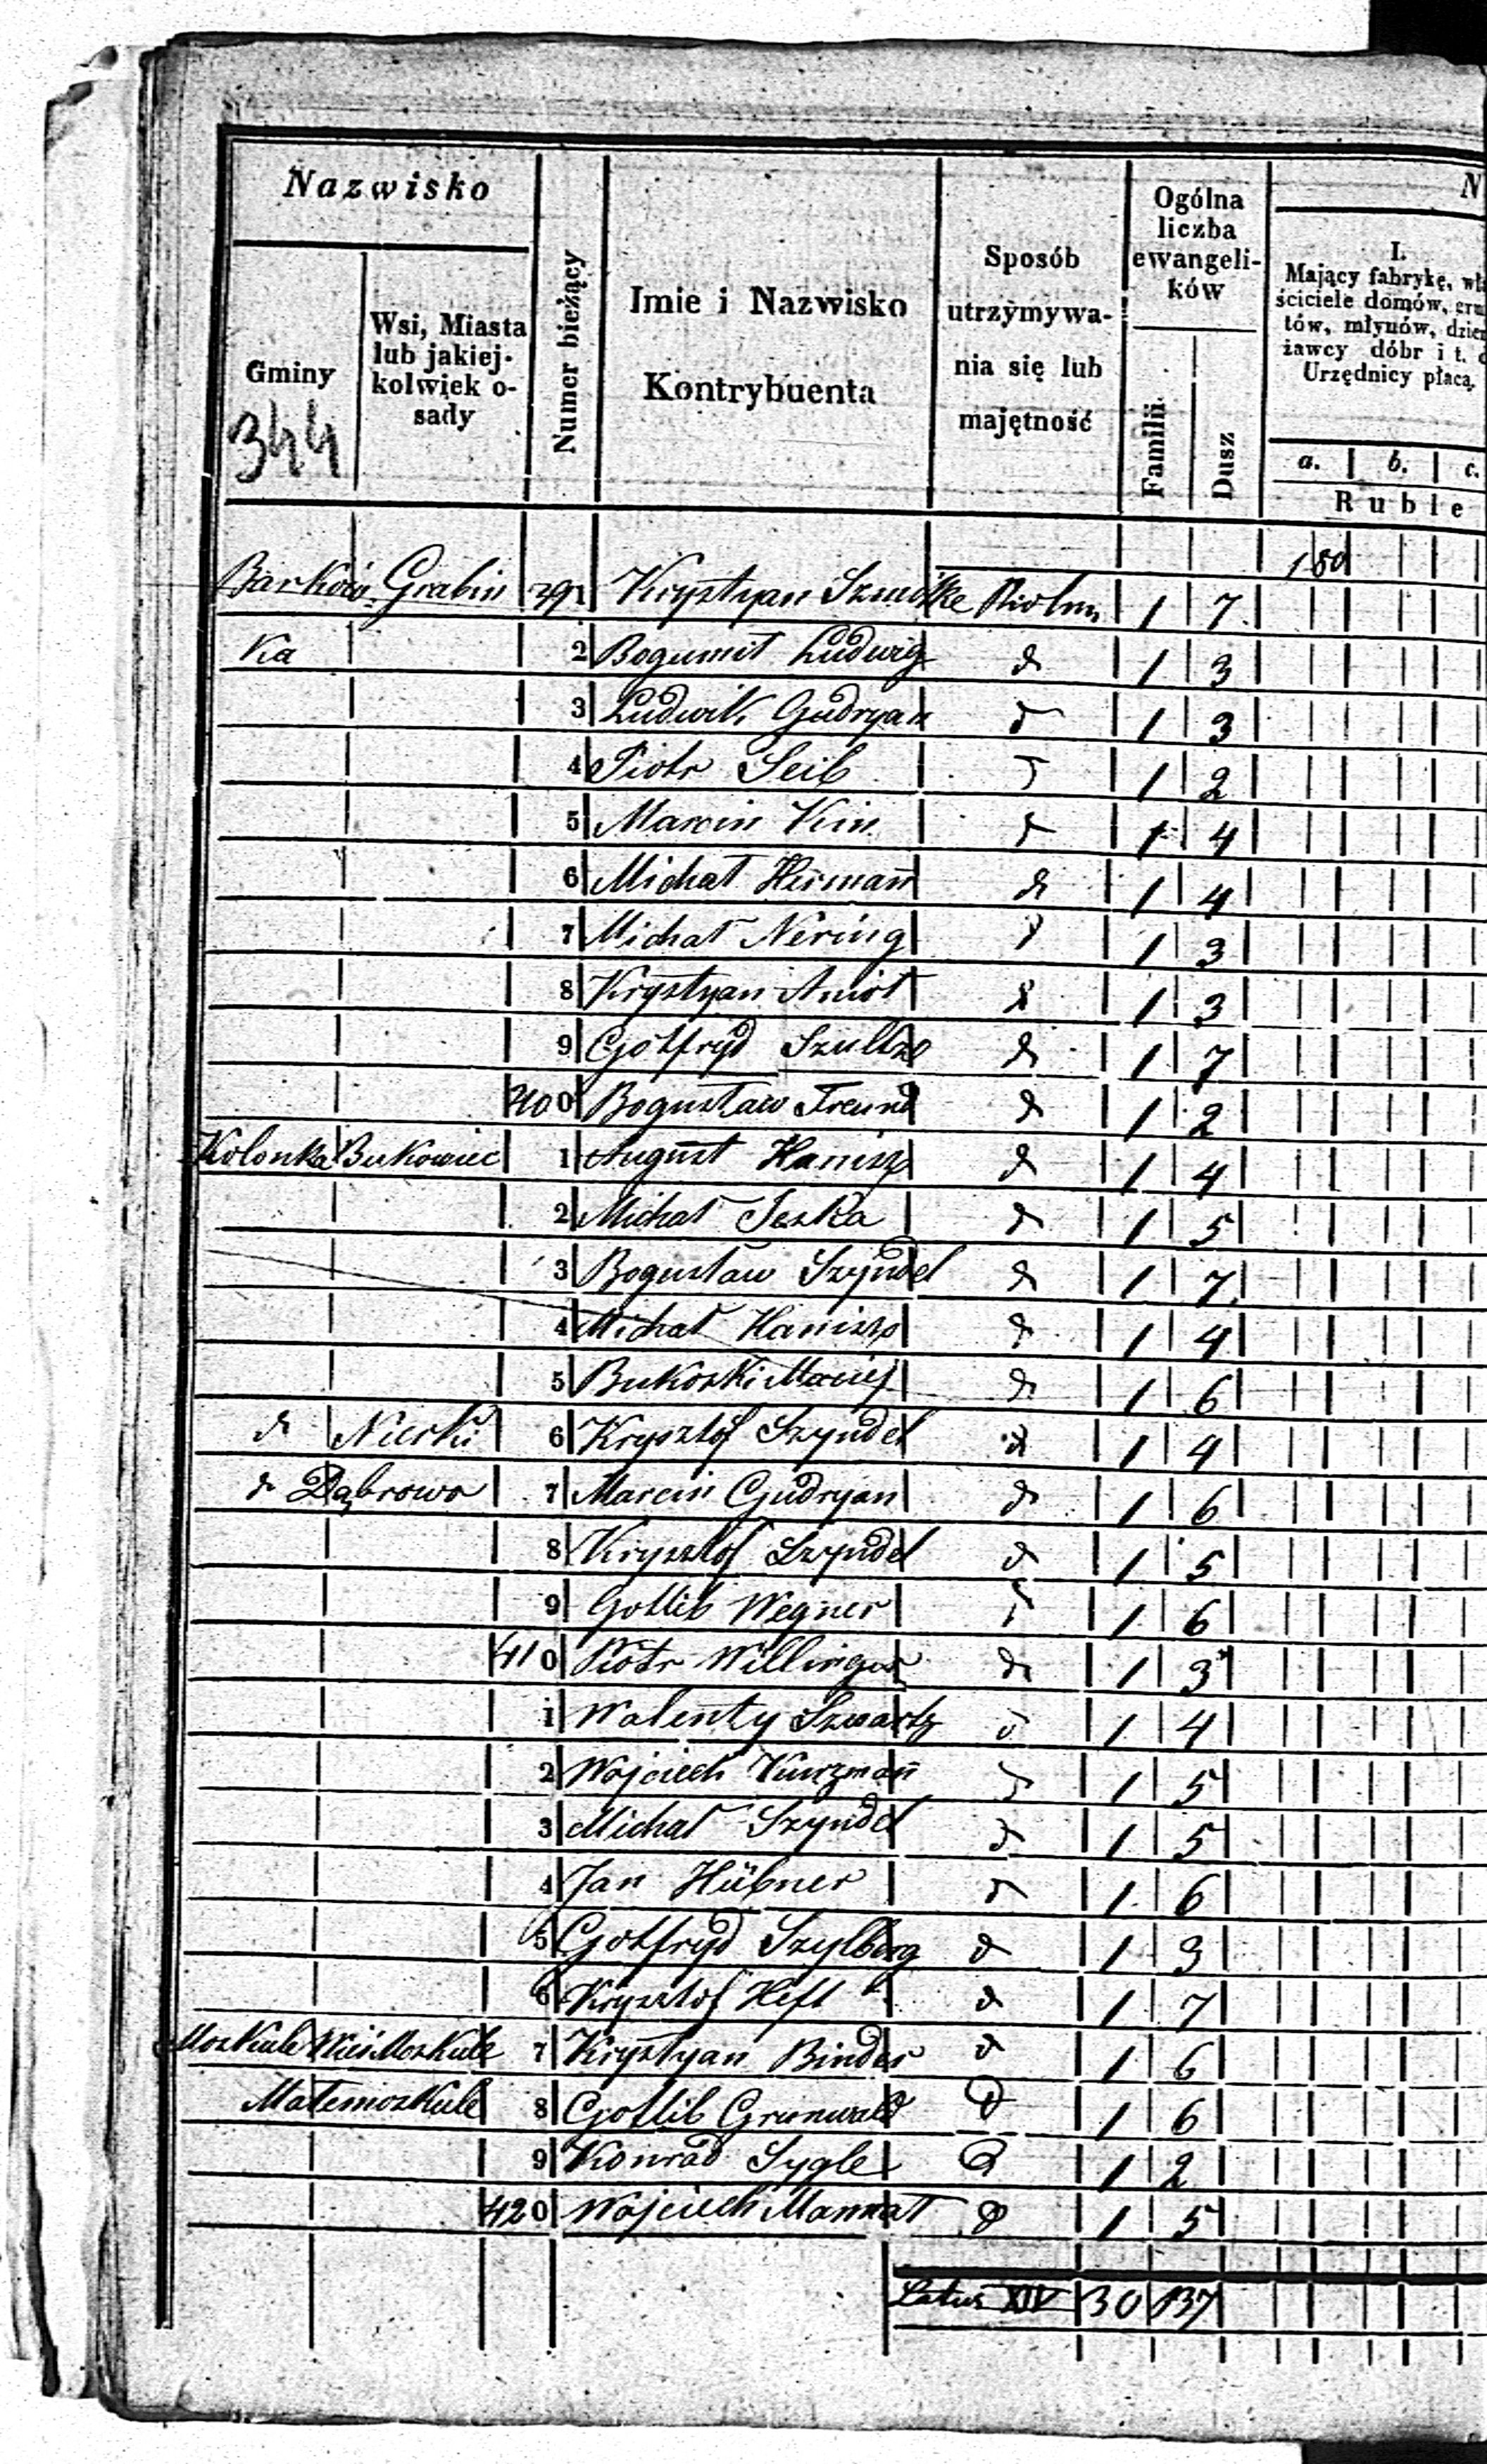 Nazwisko
Gminy
Wsi, Miasta
lub jakiej-
kolwiek o-
sady
Numer bieżący
Imie i Nazwisko
Kontrybuenta
Sposób
utrzymywa-
nia się lub
majętność
Ogólna
liczba
ewangeli-
ków
Familii
Dusz
N
I.
Mający fabrykę, wła
ściciele domów, grun
tów, młynów, dzier
żawcy dóbr i t. d
Urzędnicy płacą.
a. b. c.
Ruble
344
180
Grabin 391 Krystyan 1 7
ka 2 Bogumił Ludwig d 1 3
3 Ludwik Gudryan d 1 3
4 Piotr Seib d 1 2
5 Marcin Kin d 1 4
6 Michał Herman̄ d 1 4
7 Michał Nering d 1 3
8 Krystyan d 1 3
9 Gotfryd Szultz d 1 7
400 Bogusław Freund d 1 2
Kolonka Bukowiec 1 August Hanisz d 1 4
2 Michał Jeska d 1 5
3 Bogusław Szyndel d 1 7
4 Michał Hanisz d 1 4
5 Bukoski Maciej d 1 6
d 6 Krysztof Szyndel d 1 4
d Dąbrowa 7 Marcin Gudryan d 1 6
8 Krysztof Szyndel d 1 5
9 Gottlib Wegner d 1 6
410 Piotr Willinger d 1 3
1 Walenty Szwartz d 1 4
2 Wojciech Kurzman̄ d 1 5
3 Michał Szyndel d 1 5
4 Jan Hübner d 1 6
5 Gotfryd Szylberg d 1 3
6 Krysztof Heft d 1 7
Moskule Wieś Moskule 7 Krystyan Binder d 1 6
Małemoskule 8 Gotlib Grunwald d 1 6
9 Konrad Sygle d 1 2
420 Wojciech d 1 5
Latus XIV 30 137